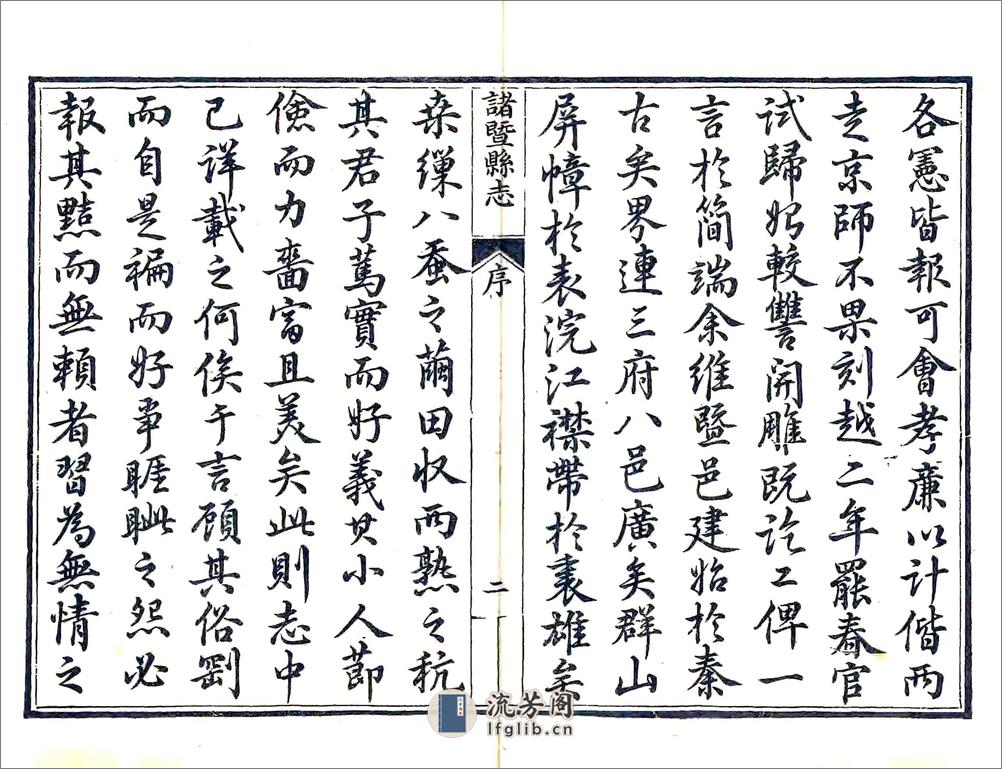 各憲皆報可會孝廉以計偕兩
走京師不果刻越二年罷春官
試歸始較讐開雕既訖工俾一
言於簡端余維暨邑建始於秦
古矣界連三府八邑廣矣群山
屏幛於表浣江襟帶於裏雄矣
諸暨縣志
序
二
桒繅八蚕之繭田収兩熟之秔
其君子篤實而好義其小人莭
儉而力嗇富且美矣此則志中
已詳載之何俟予言顧其俗劉
而自是褊而好事睚眦之怨必
報其黠而無頼者習為無情之
流芳阁
lfglib.cn